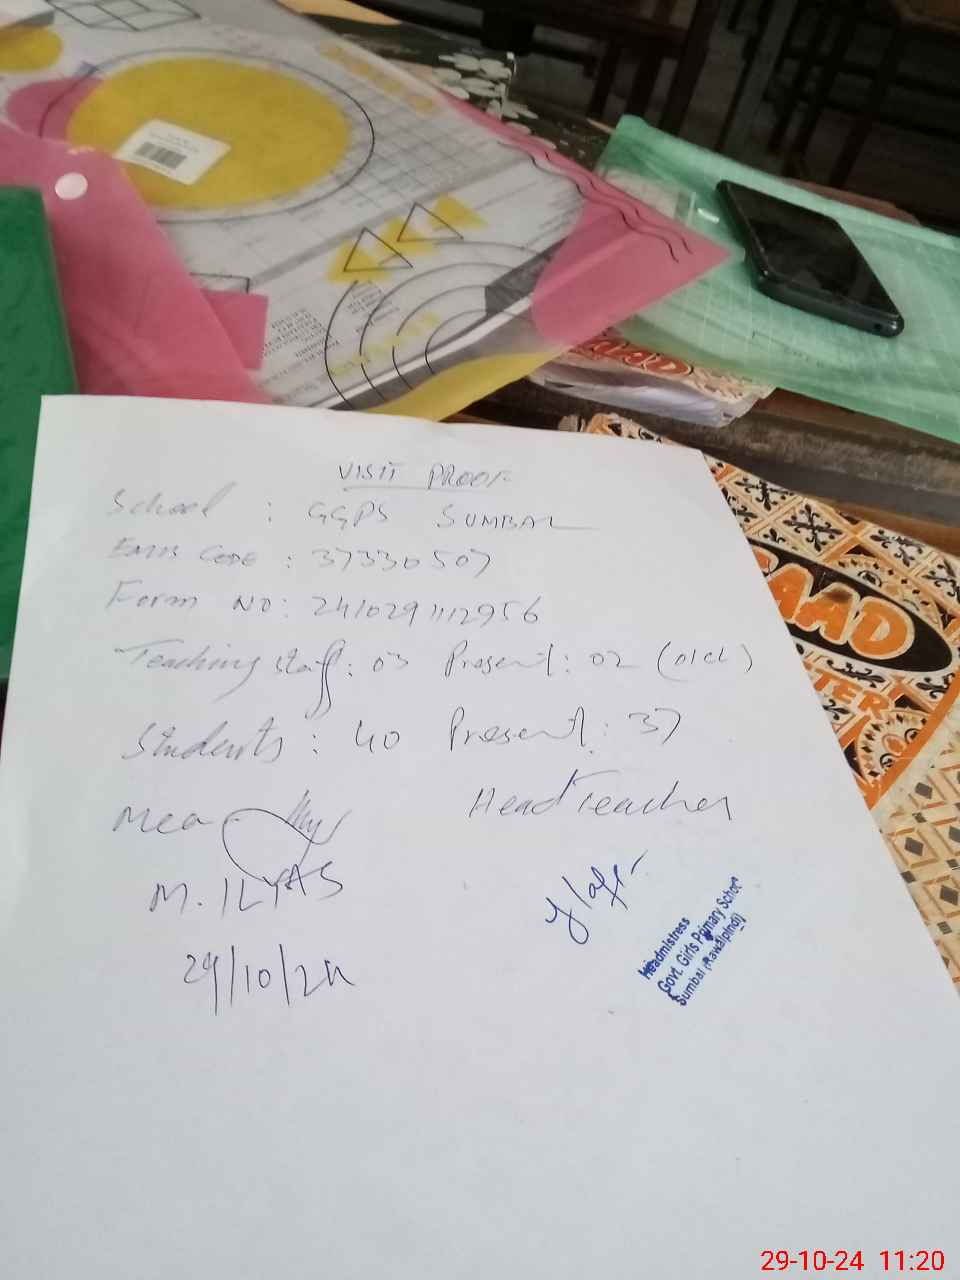 VISIT PROOF
School : GGPS SUMBAL
EMIS CODE : 37330507
Form NO: 241029112956
Teaching staff: 03 Present: 02 (01CL)
Students : 40 Present: 37
Mea
Head Teacher
M. ILYAS
29/10/24
Headmistress
Govt. Girls Primary School
Sumbal (Rawalpindi)
AAD
AAD
TER
29-10-24 11:20